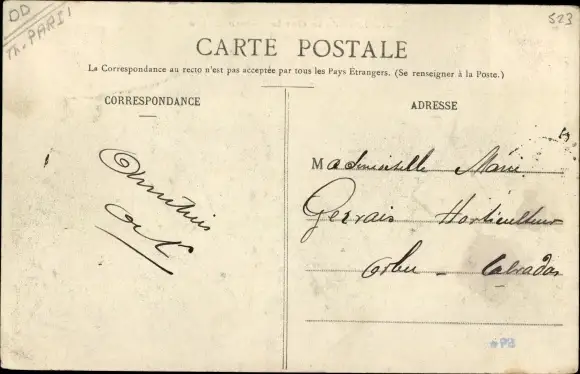 DD
Th. PARI
523
CARTE POSTALE
La Correspondance au recto n'est pas acceptée par tous les Pays Etrangers. (Se renseigner à la Poste.)
CORRESPONDANCE
ADRESSE
Amitiés
Mademoiselle Marie
Gervais Horticulteur
Orbec - Calvados
*PB